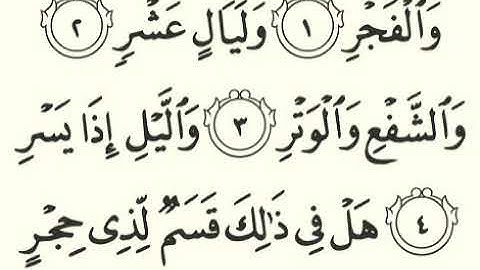 وَٱلْفَجْرِ ١ وَلَيَالٍ عَشْرٍ ٢
وَٱلشَّفْعِ وَٱلْوَتْرِ ٣ وَٱلَّيْلِ إِذَا يَسْرِ
٤ هَلْ فِى ذَٰلِكَ قَسَمٌ لِّذِى حِجْرٍ